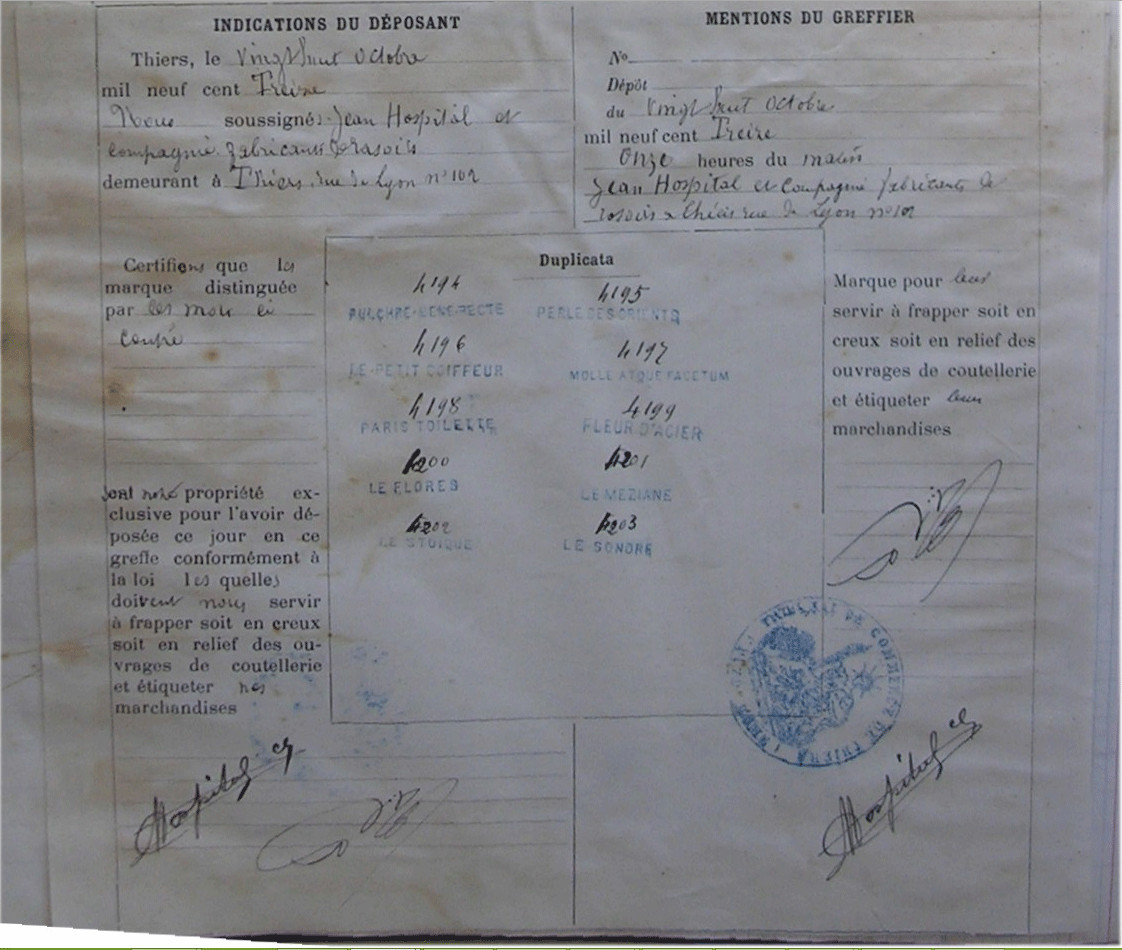 INDICATIONS DU DÉPOSANT
Thiers, le vingt huit Octobre
mil neuf cent Treize
Nous soussignés Jean Hospital et
compagnie fabricants de rasoirs
demeurant à Thiers, rue de Lyon n° 102
Certifions que les
marque distinguée
par les mots ci
contre
sont notre propriété ex-
clusive pour l'avoir dé-
posée ce jour en ce
greffe conformément à
la loi les quelles
doivent nous servir
à frapper soit en creux
soit en relief des ou-
vrages de coutellerie
et étiqueter nos
marchandises
Hospital
Duplicata
4194 4195
PULCHRE-BENE-RECTE PERLE DES ORIENTS
4196 4197
LE-PETIT COIFFEUR MOLLE ATQUE FACETUM
4198 4199
PARIS TOILETTE FLEUR D'ACIER
4200 4201
LE FLORES LE MEZIANE
4202 4203
LE STOIQUE LE SONORE
MENTIONS DU GREFFIER
No
Dépôt
du vingt huit Octobre
mil neuf cent Treize
Onze heures du matin
Jean Hospital et Compagnie fabricants de
rasoirs a Thiers rue de Lyon n° 102
Marque pour leur
servir à frapper soit en
creux soit en relief des
ouvrages de coutellerie
et étiqueter leurs
marchandises
TRIBUNAL DE COMMERCE DE THIERS
Hospital